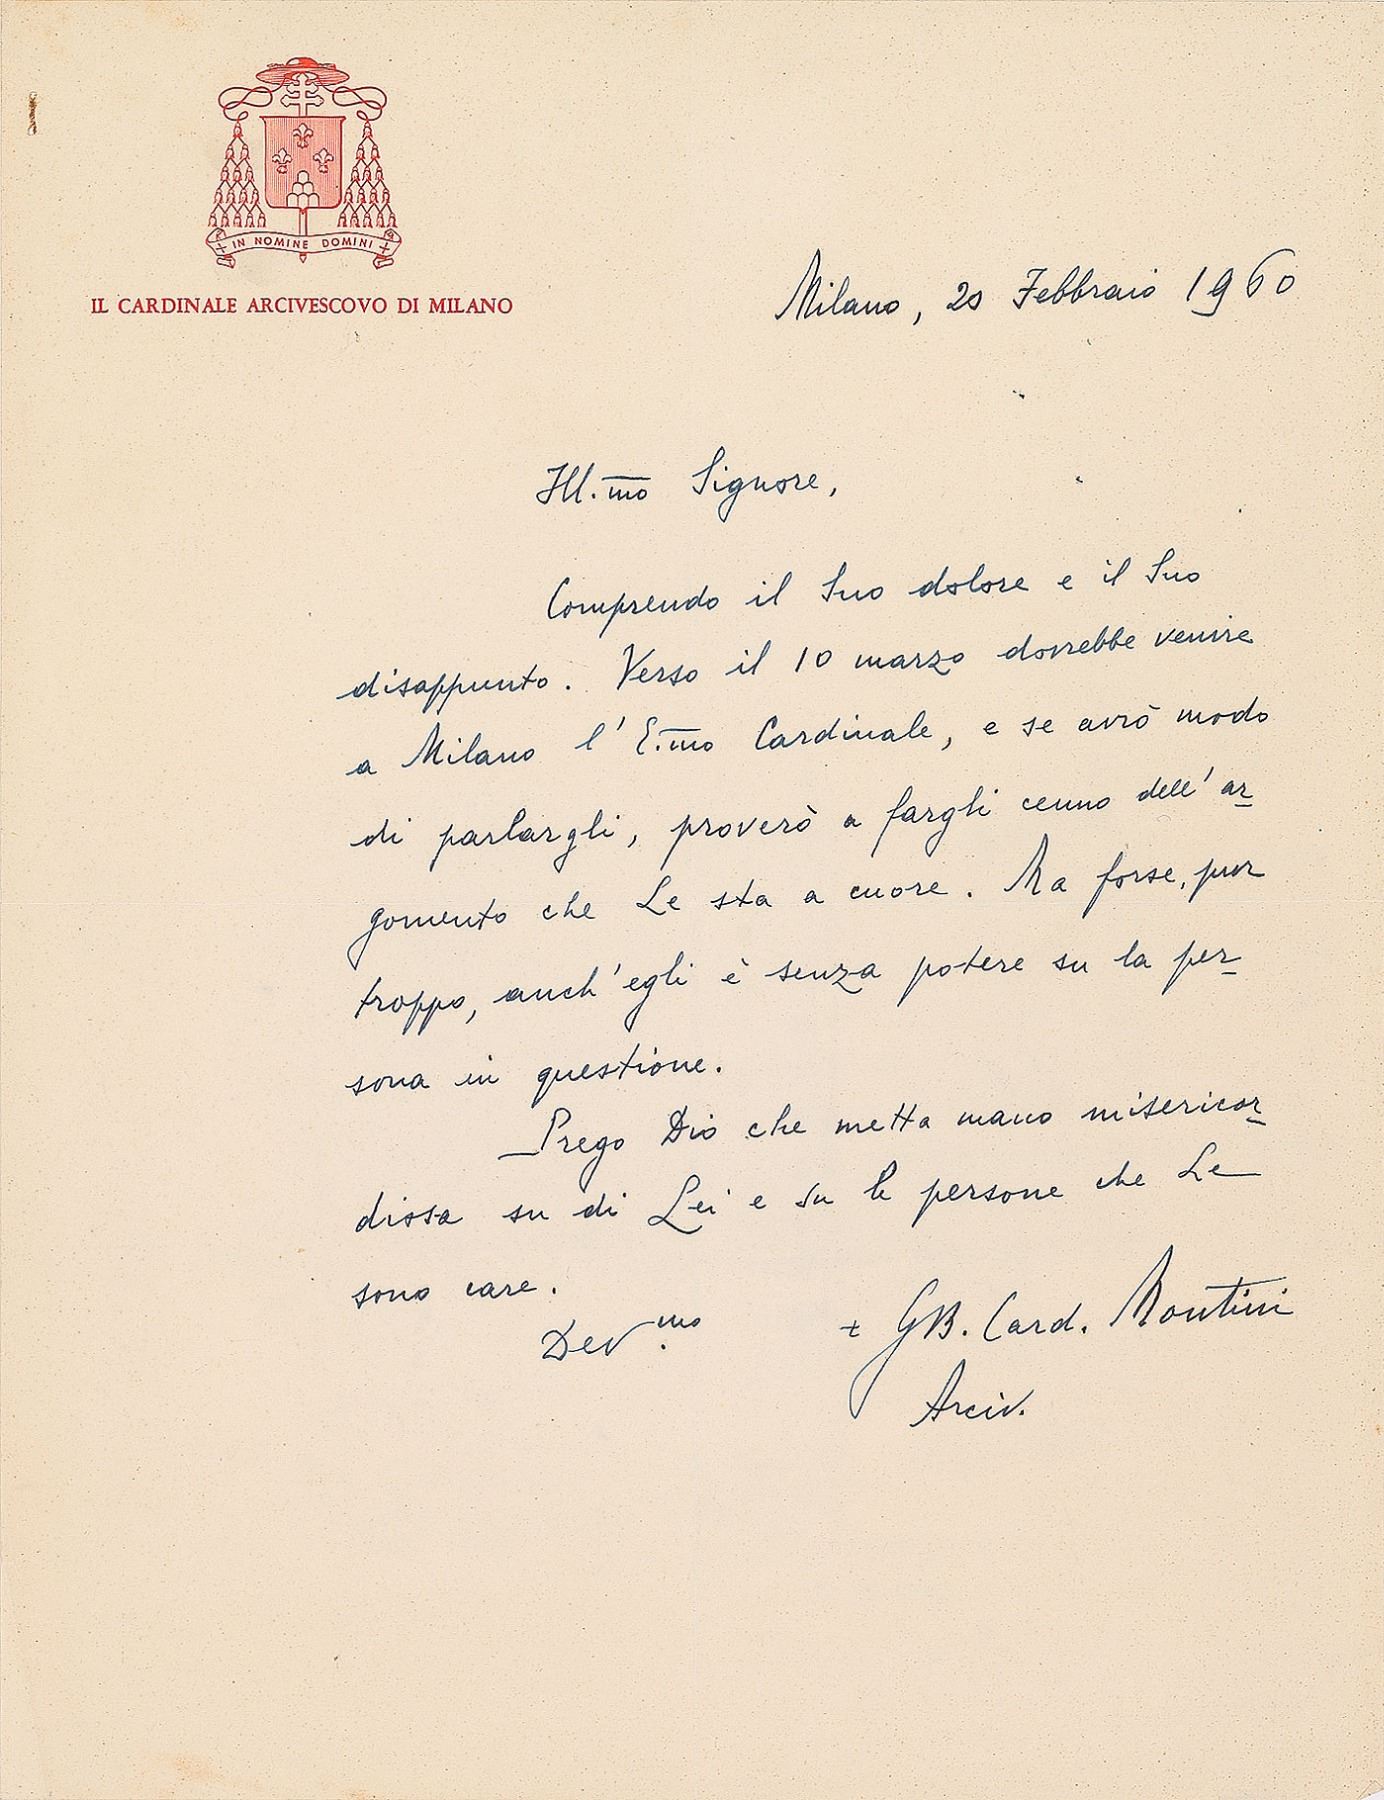 IN NOMINE DOMINI
IL CARDINALE ARCIVESCOVO DI MILANO
Milano, 20 Febbraio 1960
Ill.mo Signore,
Comprendo il Suo dolore e il Suo
disappunto. Verso il 10 marzo dovrebbe venire
a Milano l'E.mo Cardinale, e se avrò modo
di parlargli, proverò a fargli cenno dell'ar-
gomento che Le sta a cuore. Ma forse, pur
troppo, anch'egli è senza potere su la per-
sona in questione.
Prego Dio che metta mano misericor-
diosa su di Lei e su le persone che Le
sono care.
Dev.mo + GB. Card. Montini
Arciv.